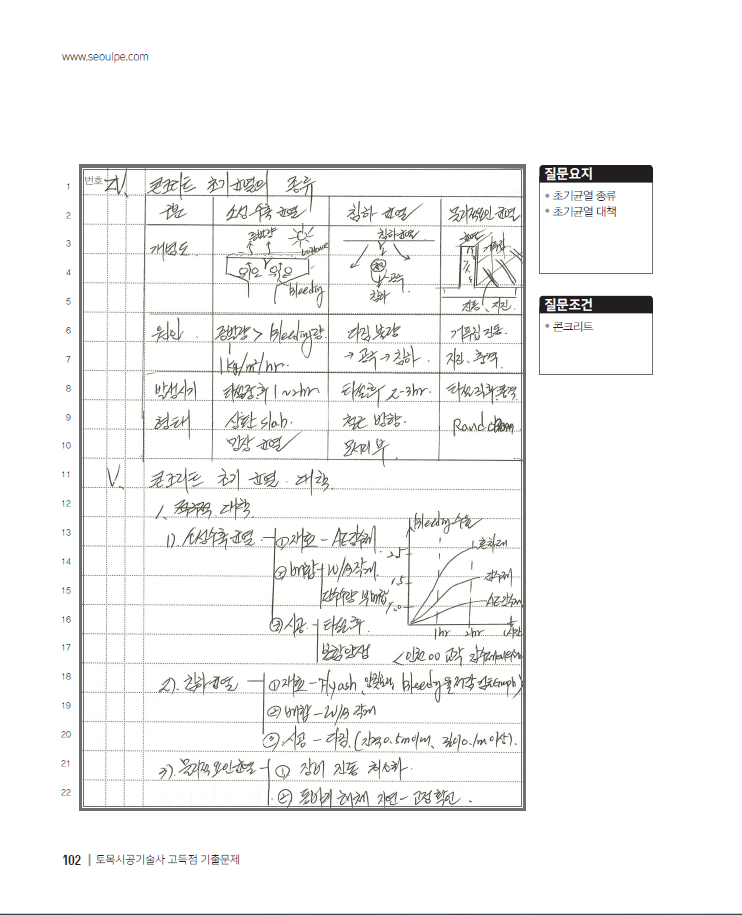 www.seoulpe.com
번호 IV. 콘크리트 초기 균열의 종류
1
2 구분 소성수축 균열 침하 균열 물리적요인 균열
3 개념도 증발량 침하균열 거푸집
4 Bleeding 공극
5 침하 진동, 지진
6 원인. 증발량 > bleeding량. 다짐 불량 거푸집 진동.
7 1kg/m²/hr. → 공극 → 침하. 지진. 충격
8 발생시기 타설후 1~2hr 타설후 2-3hr. 타설직후 충격
9 형태 상판 slab. 철근 방향. Random
10 망상 균열
11 V. 콘크리트 초기 균열. 대책.
12 1. 대책.
13 1). 소성수축 균열 ① 재료 - AE감수제 bleeding 수율
14 ② 배합 W/B 작게. 2.5
15 단위수량 1.5 감수제
16 ③ 시공 - 타설후. AE감수제
17 1hr 2hr 시간
18 2). 침하균열 ① 재료 - Flyash,
19 ② 배합 - W/B 작게
20 ③ 시공 - 다짐. (간격 0.5m이내, 깊이 0.1m이상).
21 3). 물리적 요인 균열 ① 장비 진동 최소화.
22 ② 동바리 해체 지연-
질문요지
• 초기균열 종류
• 초기균열 대책
질문조건
• 콘크리트
102 | 토목시공기술사 고득점 기출문제